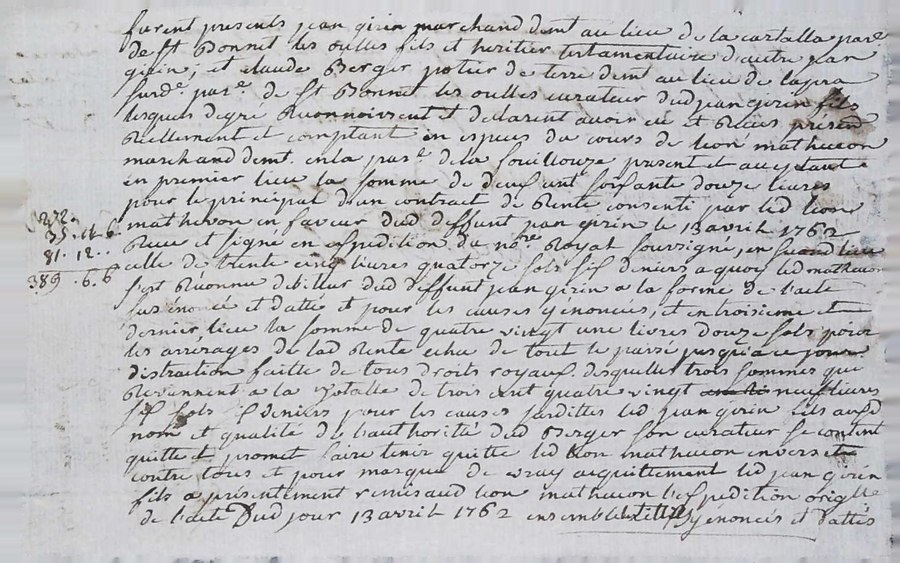 furent presents jean girin marchand demt au lieu de la cartalla parse
de st Bonnet les oulles fils et heritier testamentaire d'autre jean
girin ; et claude Berger potier de terre demt au lieu de
surde parse de st Bonnet les oulles curateur dud jean girin fils
lesquels de gré Reconnoissent et declarent avoir eu et Reçus présent
Reellement et comptant en especes du cours de leon matheuon
marchand demt en la parse de la fouillouze present et acceptant
en premier lieu la somme de deux cent soixante douze livres
pour le principal d'un contract de Rente consenti par led leon
matheuon en faveur dud deffunt jean girin le 13 avril 1762
Receu et signé en expedition du nore Royal soussigné, en second lieu
272.
35. 14. 6
81. 12..
389. 6. 6
celle de trente cinq livres quatorze sols six deniers a quoy led matheuon
s'est Réconnu debiteur dud deffunt jean girin a la forme de l'acte
sus énoncé et datté et pour les causes y énoncées, et en troisieme et
dernier lieu la somme de quatre vingt une livres douze sols pour
les arrérages de lad Rente echu de tout le passé jusqu'a ce jour
distraction faitte de tous droits royaux, desquelles trois sommes qui
Reviennent a la totalle de trois cent quatre vingt neuf livres
six sols six deniers pour les causes susdittes led jean girin fils aud
nom et qualité de l'authorité dud Berger son curateur se content
quitte et promet faire tenir quitte led leon matheuon envers et
contre tous et pour marque de vray acquittement led jean girin
fils a présentement remis aud leon matheuon l'expedition origlle
de l'acte dud jour 13 avril 1762 ensemble y énoncés et dattés